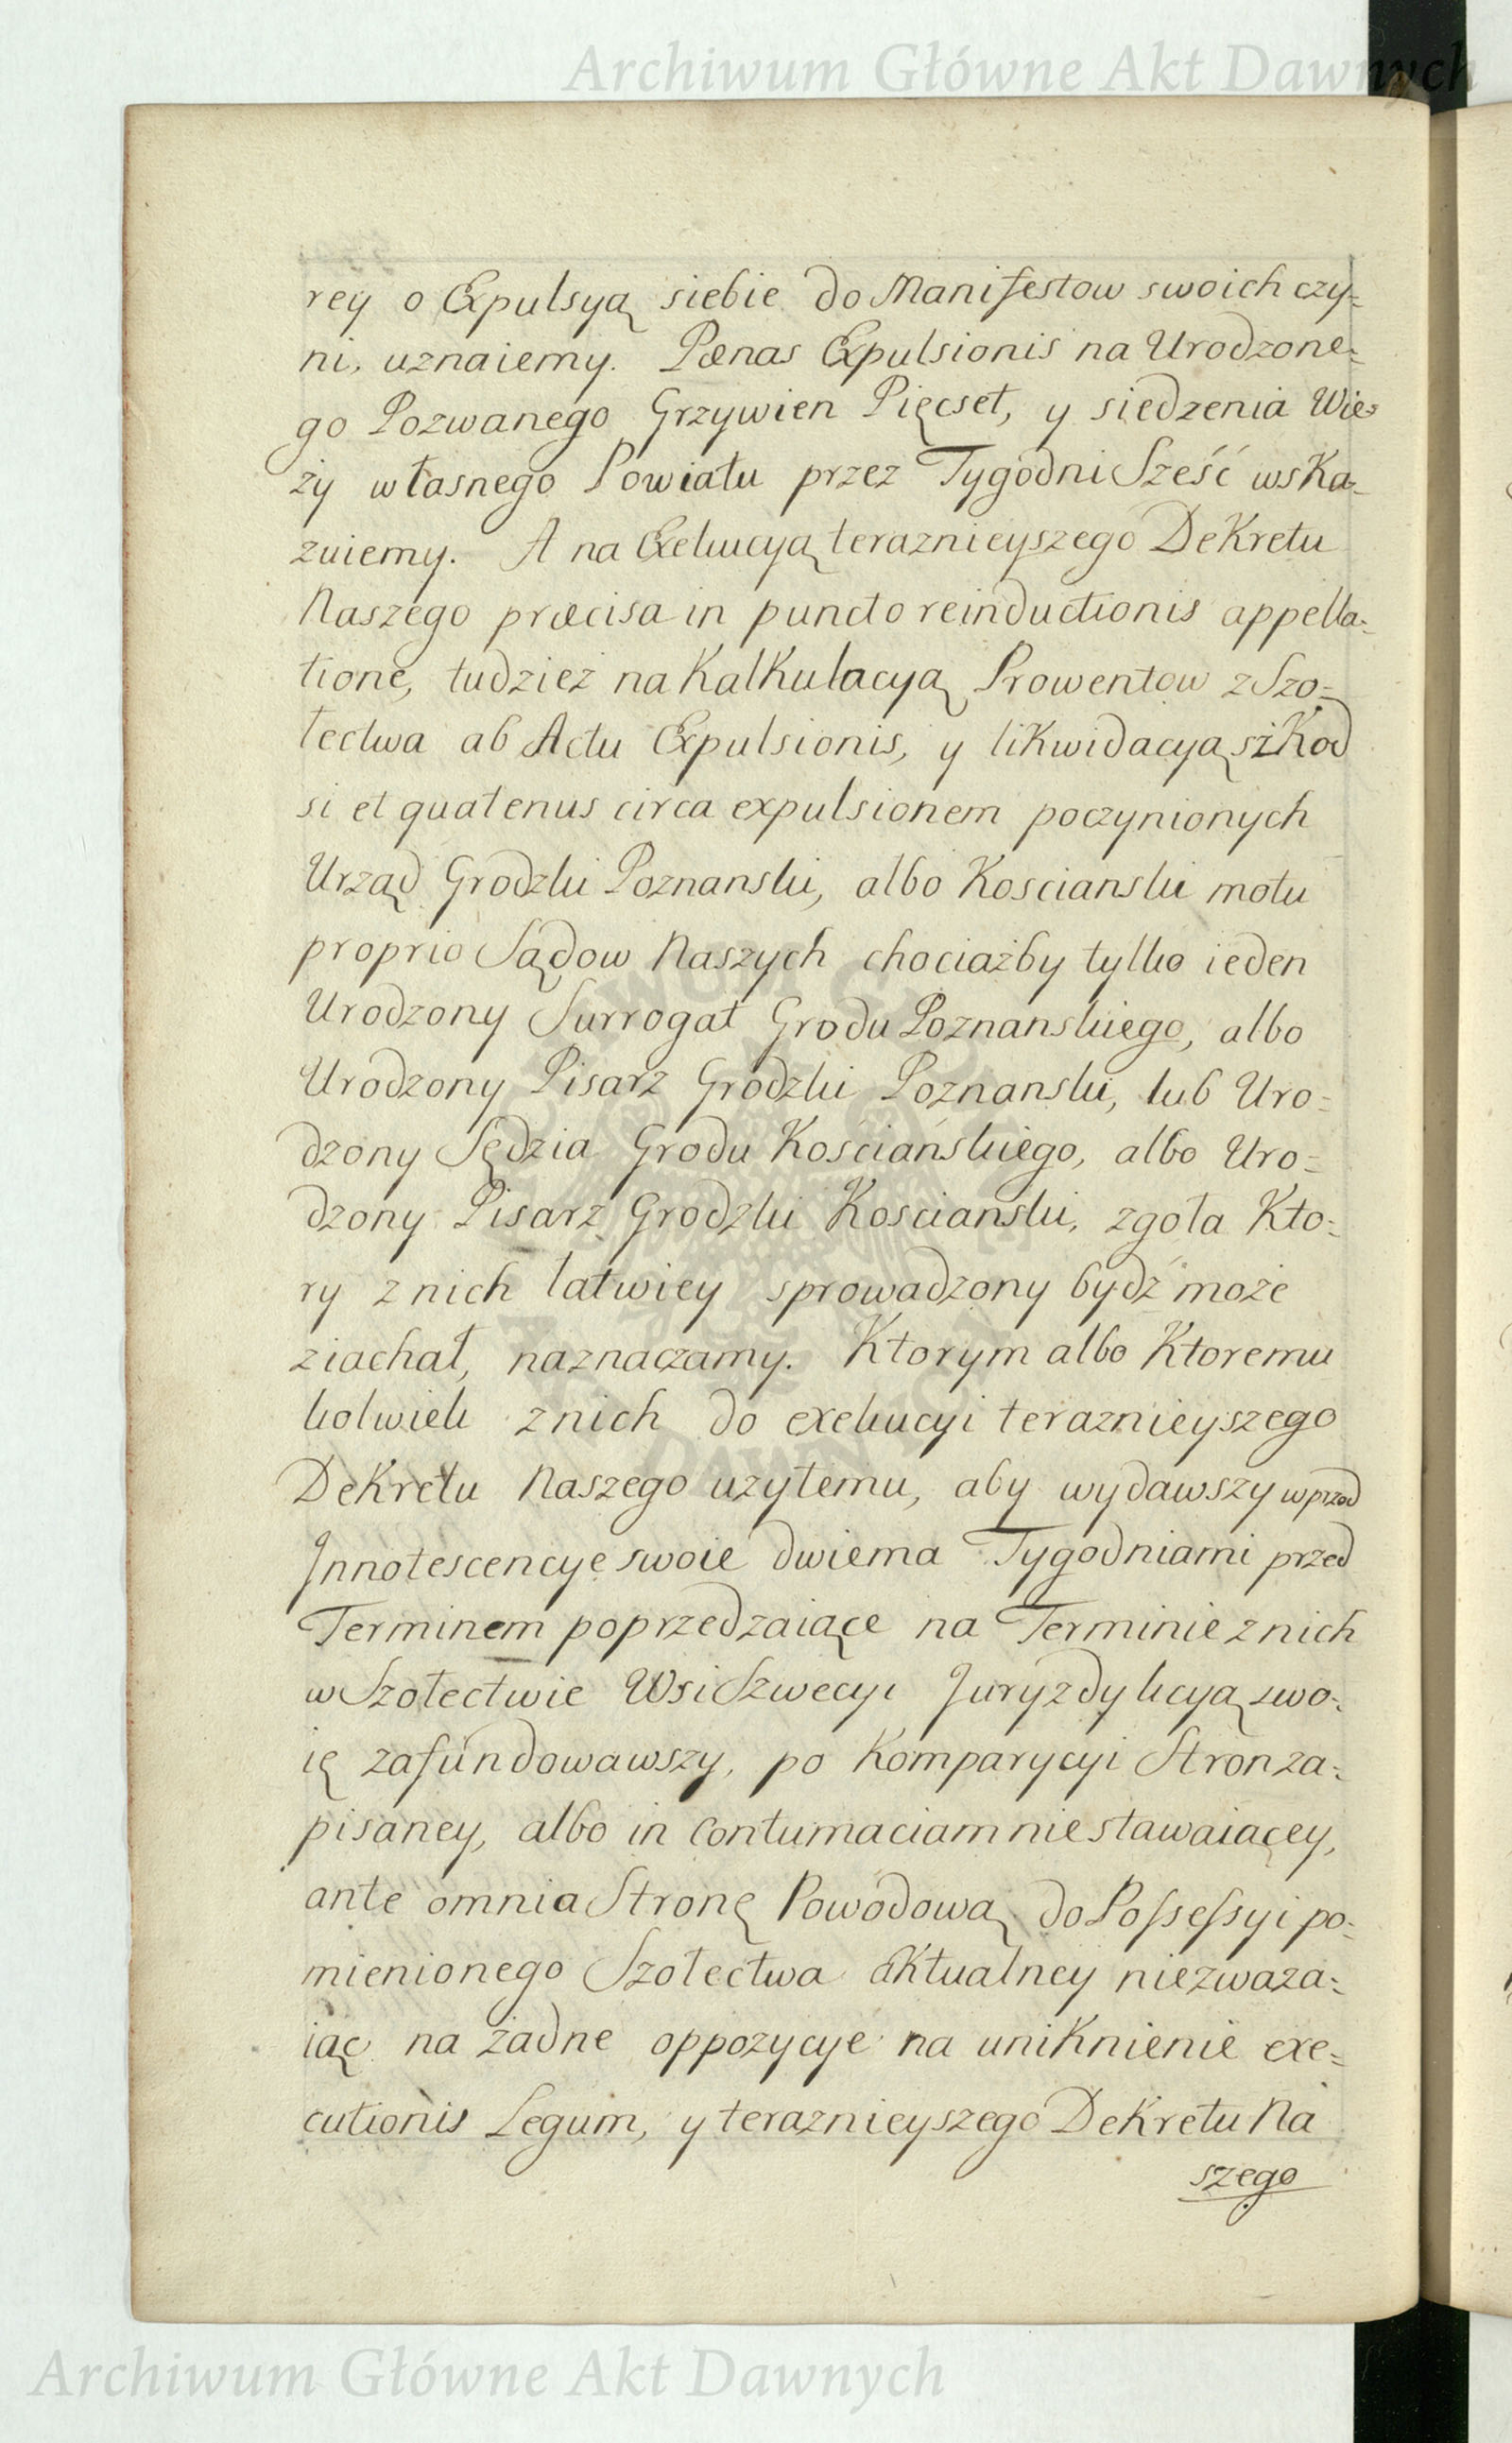 Archiwum Główne Akt Dawnych
rey o Expulsyą siebie do Manifestow swoich czy=
ni, uznaiemy. Pœnas Expulsionis na Urodzone=
go Pozwanego Grzywien Pięcset, y siedzenia Wie=
ży własnego Powiatu przez Tygodni Sześć wska=
zuiemy. A na Exekucyą teraznieyszego Dekretu
Naszego præcisa in puncto reinductionis appella=
tione, tudzież na Kalkulacyą Prowentow z Szo=
łectwa ab Actu Expulsionis, y likwidacyą szkod
si et quatenus circa expulsionem poczynionych
Urząd Grodzki Poznanski, albo Koscianski motu
proprio Sądow Naszych chociażby tylko ieden
Urodzony Surrogat Grodu Poznanskiego, albo
Urodzony Pisarz Grodzki Poznanski, lub Uro=
dzony Sędzia Grodu Kościańskiego, albo Uro=
dzony Pisarz Grodzki Koscianski, zgoła Kto=
ry z nich łatwiey sprowadzony bydź może
ziachał, naznaczamy. Ktorym albo Ktoremu
kolwiek z nich do exekucyi teraznieyszego
Dekretu Naszego uzytemu, aby wydawszy wprzod
Innotescencye swoie dwiema Tygodniami przed
Terminem poprzedzaiące na Terminie z nich
w Szołectwie Wsi Szwecyi Juryzdykcyą swo=
ię zafundowawszy, po Komparycyi Stron za=
pisaney, albo in Contumaciam nie stawaiącey,
ante omnia Stronę Powodową do Possessyi po=
mienionego Szołectwa aktualney niezwaza=
iąc na żadne oppozycye na uniknienie exe=
cutionis Legum, y teraznieyszego Dekretu Na
szego
Archiwum Główne Akt Dawnych